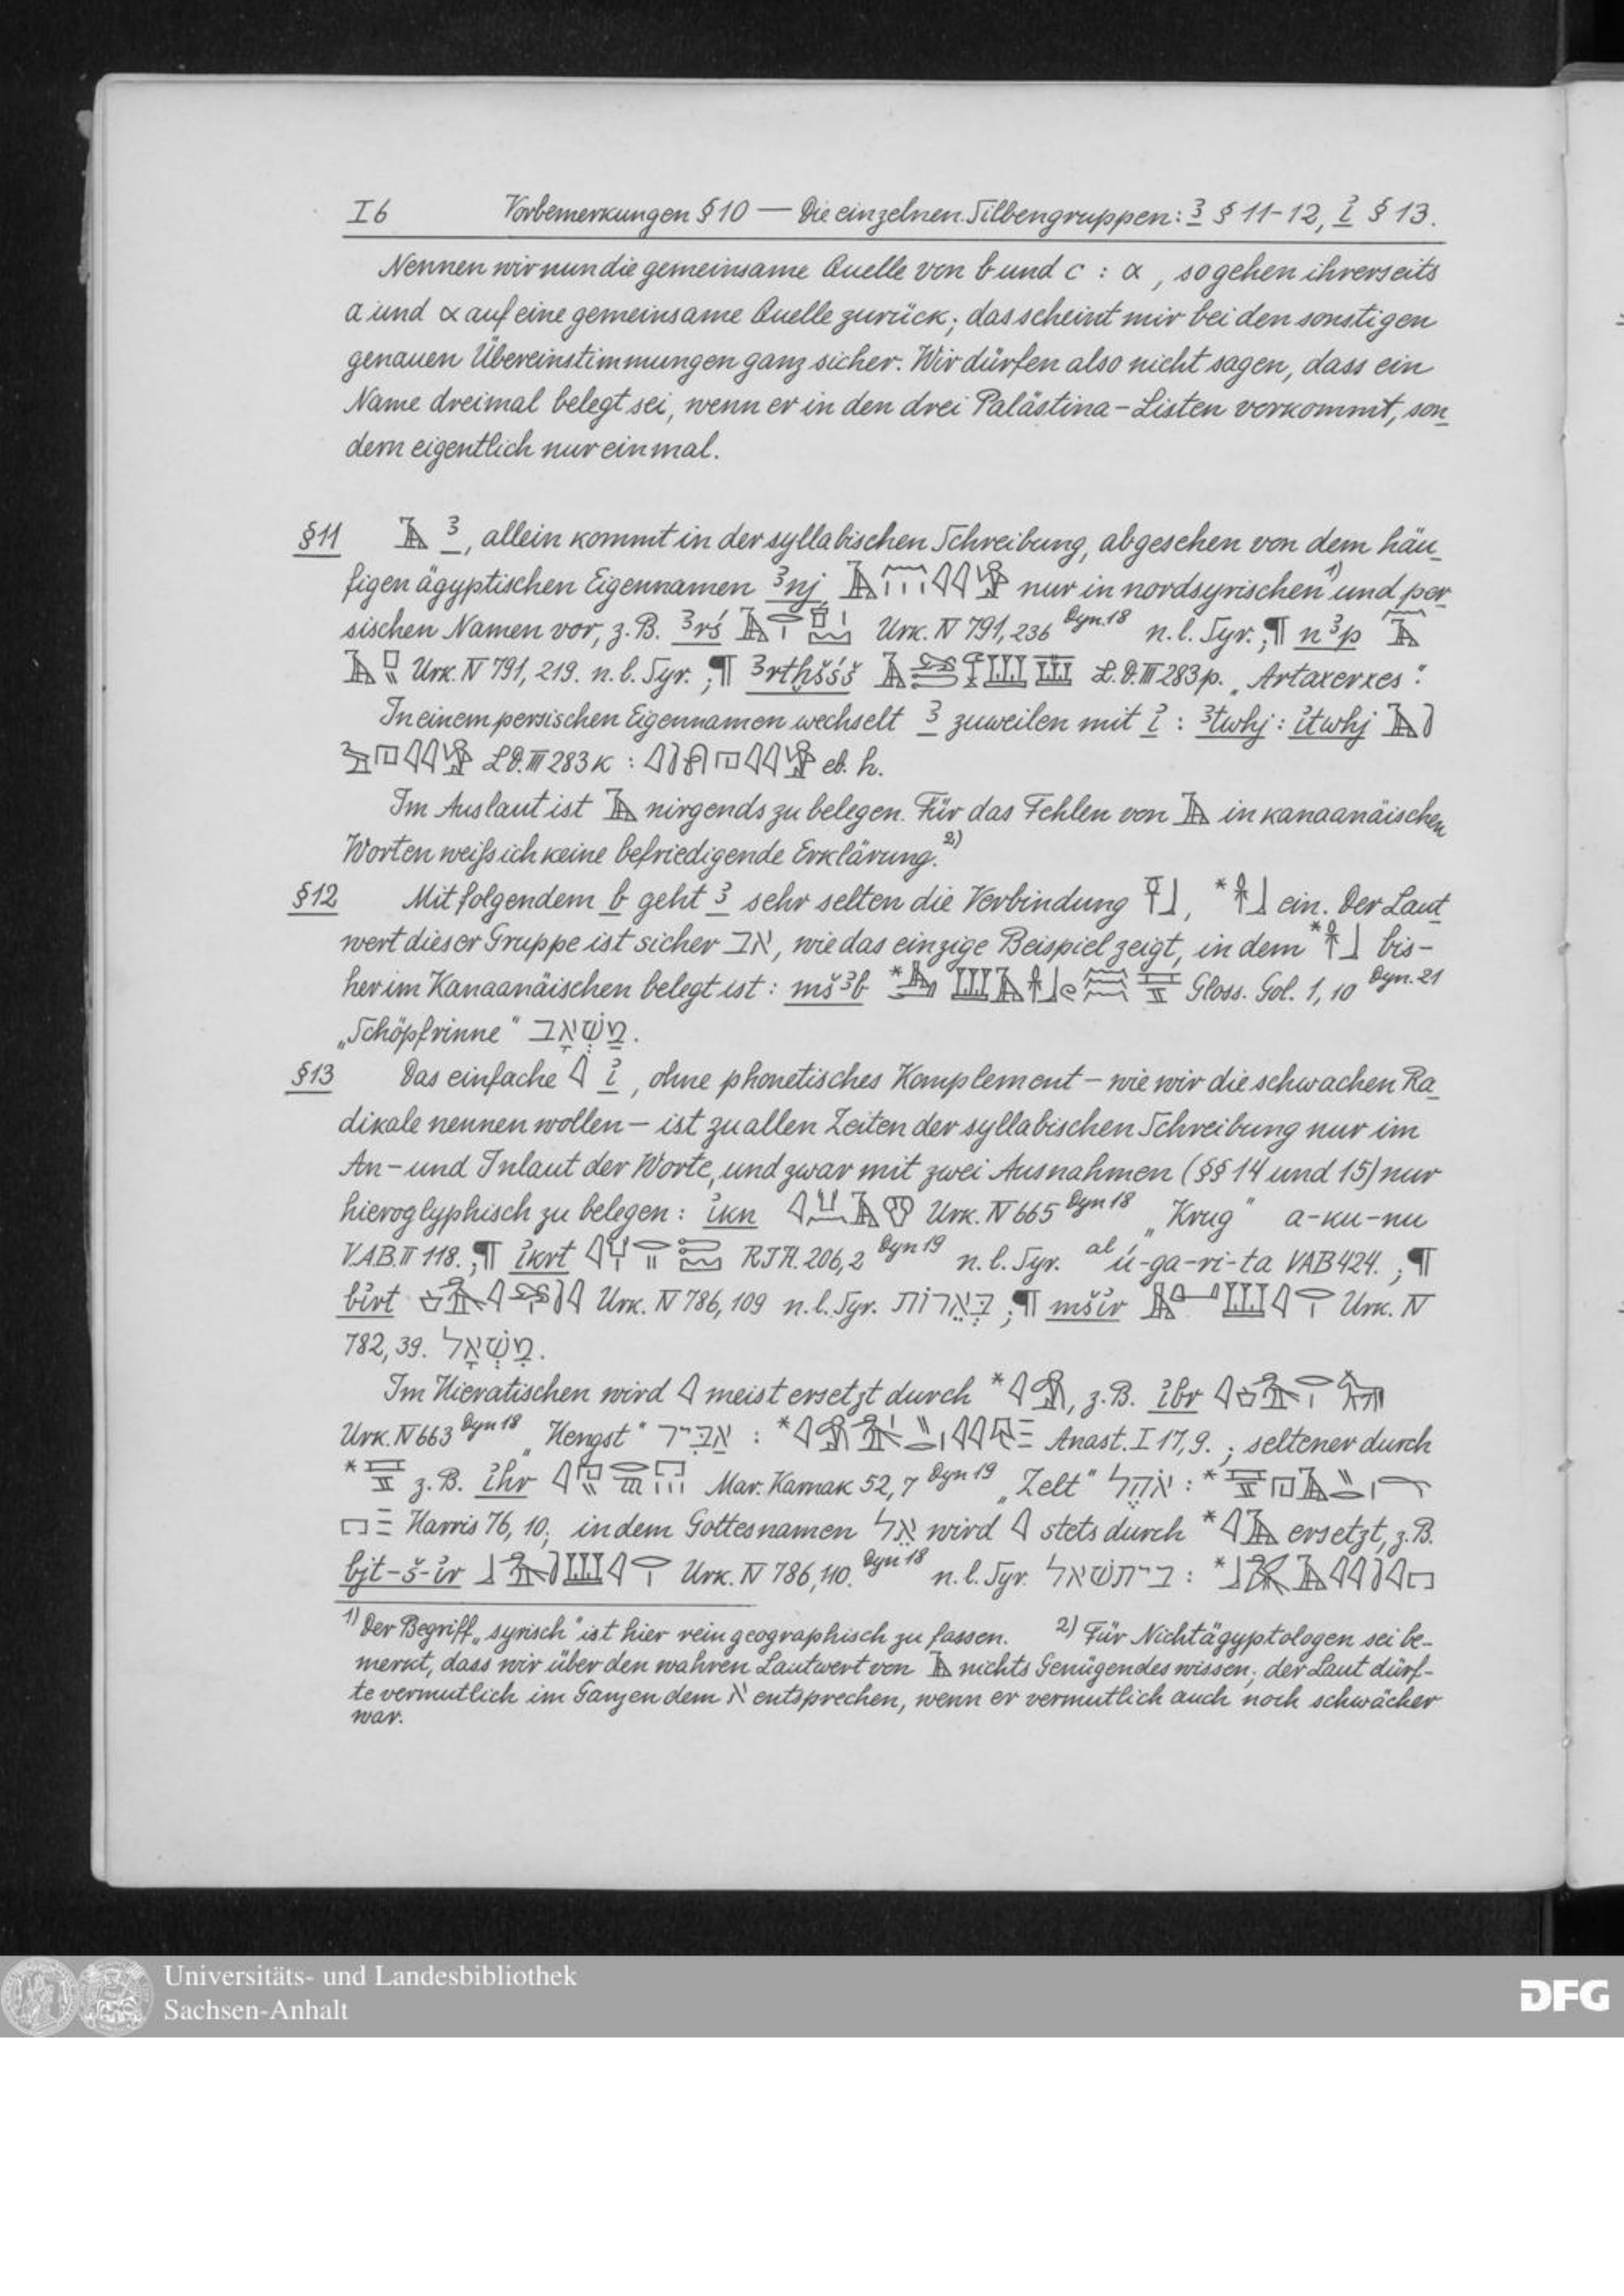 I 6 Vorbemerkungen § 10 — Die einzelnen Silbengruppen: ꜣ § 11-12, i̓ § 13.
Nennen wir nun die gemeinsame Quelle von b und c : α, so gehen ihrerseits
a und α auf eine gemeinsame Quelle zurück; das scheint mir bei den sonstigen
genauen Übereinstimmungen ganz sicher. Wir dürfen also nicht sagen, dass ein
Name dreimal belegt sei, wenn er in den drei Palästina-Listen vorkommt, son
dern eigentlich nur einmal.
§11 𓄿 ꜣ, allein kommt in der syllabischen Schreibung, abgesehen von dem häu
figen ägyptischen Eigennamen ꜣnj nur in nordsyrischen¹⁾ und per
sischen Namen vor, z.B. ꜣrś Urk. IV 791, 236 Dyn.18 n.l. Syr.; ¶ nꜣp
Urk. IV 791, 219. n.l. Syr.; ¶ ꜣrtḫšśš L.D. III 283 p. „Artaxerxes“.
In einem persischen Eigennamen wechselt ꜣ zuweilen mit i̓ : ꜣtwhj : i̓twhj
L.D. III 283 K : eb. h.
Im Auslaut ist 𓄿 nirgends zu belegen. Für das Fehlen von 𓄿 in kanaanäischen
Worten weiß ich keine befriedigende Erklärung.²⁾
§12 Mit folgendem b geht ꜣ sehr selten die Verbindung ein. Der Laut
wert dieser Gruppe ist sicher אב, wie das einzige Beispiel zeigt, in dem bis-
her im Kanaanäischen belegt ist : mšꜣb Gloss. Gol. 1, 10 Dyn. 21
„Schöpfrinne“ מַשְׁאָב.
§13 Das einfache 𓇋 i̓, ohne phonetisches Komplement – wie wir die schwachen Ra
dikale nennen wollen – ist zu allen Zeiten der syllabischen Schreibung nur im
An- und Inlaut der Worte, und zwar mit zwei Ausnahmen (§§ 14 und 15) nur
hieroglyphisch zu belegen : i̓kn Urk. IV 665 Dyn 18 „Krug“ a-ku-nu
V.A.B. II 118.; ¶ i̓krt R.I.H. 206, 2 Dyn 19 n.l. Syr. al ú-ga-ri-ta VAB 424. ; ¶
bi̓rt Urk. IV 786, 109 n.l. Syr. בְּאֵרוֹת ; ¶ mši̓r Urk. IV
782, 39. מִשְׁאָל.
Im Hieratischen wird 𓇋 meist ersetzt durch *, z.B. i̓br
Urk. IV 663 Dyn 18 „Hengst“ אַבִּיר : * Anast. I 17, 9. ; seltener durch
* z.B. i̓hr Mar. Karnak 52, 7 Dyn 19 „Zelt“ אֹהֶל : *
Harris 76, 10; in dem Gottesnamen אֵל wird 𓇋 stets durch *𓇋𓄿 ersetzt, z.B.
bjt-š-i̓r Urk. IV 786, 110. Dyn 18 n.l. Syr. ביתשׁאל : *
1) Der Begriff „syrisch“ ist hier rein geographisch zu fassen. 2) Für Nichtägyptologen sei be-
merkt, dass wir über den wahren Lautwert von 𓄿 nichts Genügendes wissen; der Laut dürf-
te vermutlich im Ganzen dem א entsprechen, wenn er vermutlich auch noch schwächer
war.
Universitäts- und Landesbibliothek
Sachsen-Anhalt
DFG